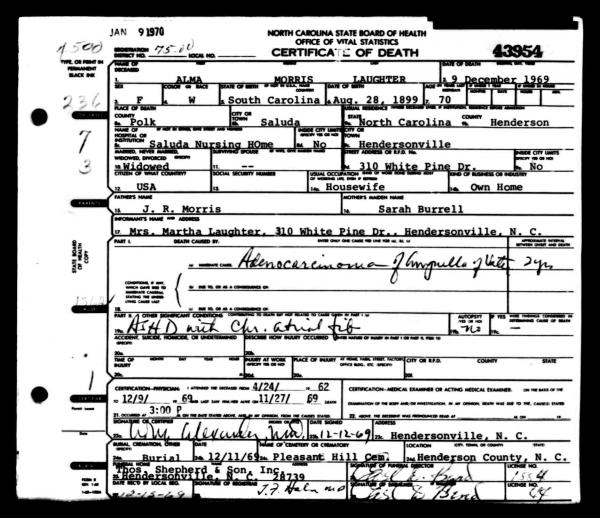 JAN 9 1970
NORTH CAROLINA STATE BOARD OF HEALTH
OFFICE OF VITAL STATISTICS
CERTIFICATE OF DEATH
43954
REGISTRATION DISTRICT NO. 75.00 LOCAL NO.
4500
TYPE, OR PRINT IN PERMANENT BLACK INK
NAME OF DECEASED
DATE OF DEATH
1. ALMA MORRIS LAUGHTER 2. 9 December 1969
SEX COLOR OR RACE STATE OF BIRTH DATE OF BIRTH AGE
F W South Carolina Aug. 28, 1899 70
236
PLACE OF DEATH COUNTY CITY OR TOWN USUAL RESIDENCE STATE COUNTY
Polk Saluda North Carolina Henderson
7
NAME OF HOSPITAL OR INSTITUTION INSIDE CITY LIMITS CITY OR TOWN
Saluda Nursing HOme 8d. No Hendersonville
3
MARRIED, NEVER MARRIED, WIDOWED, DIVORCED SURVIVING SPOUSE STREET ADDRESS OR R.F.D. NO. INSIDE CITY LIMITS
10. Widowed 11. -- 310 White Pine Dr. No
CITIZEN OF WHAT COUNTRY? SOCIAL SECURITY NUMBER USUAL OCCUPATION KIND OF BUSINESS OR INDUSTRY
12. USA 13. 14a. Housewife 14b. Own Home
PARENTS
FATHER'S NAME MOTHER'S MAIDEN NAME
15. J. R. Morris 16. Sarah Burrell
INFORMANT'S NAME AND ADDRESS
17. Mrs. Martha Laughter, 310 White Pine Dr., Hendersonville, N. C.
STATE BOARD OF HEALTH COPY
PART I. DEATH CAUSED BY: ENTER ONLY ONE CAUSE PER LINE APPROXIMATE INTERVAL BETWEEN ONSET AND DEATH
IMMEDIATE CAUSE Adenocarcinoma of Ampulla of Vater 2 yrs
DUE TO, OR AS A CONSEQUENCE OF:
CONDITIONS, IF ANY, WHICH GAVE RISE TO IMMEDIATE CAUSE STATING THE UNDERLYING CAUSE LAST
18. DUE TO, OR AS A CONSEQUENCE OF:
PART II. OTHER SIGNIFICANT CONDITIONS AUTOPSY?
19a. ASHD with Chr. atrial fib 19b. no —
ACCIDENT, SUICIDE, HOMICIDE, OR UNDETERMINED DESCRIBE HOW INJURY OCCURRED
20a.
TIME OF INJURY INJURY AT WORK PLACE OF INJURY CITY OR R.F.D. COUNTY STATE
1
CERTIFICATION—PHYSICIAN: I ATTENDED THE DECEASED FROM 4/24/ 62
TO 12/9/ 69 AND LAST SAW HIM/HER ALIVE ON 11/27/ 69
CERTIFICATION—MEDICAL EXAMINER OR ACTING MEDICAL EXAMINER
21. OCCURRED AT 3:00 P
SIGNATURE OF CERTIFIER DATE SIGNED ADDRESS
W M Alexander, M.D. 12-12-69 Hendersonville, N. C.
BURIAL, CREMATION, OTHER DATE NAME OF CEMETERY OR CREMATORY LOCATION
24a. Burial 12/11/69 Pleasant Hill Cem. 24d. Henderson County, N. C.
Thos. Shepherd & Son, Inc. SIGNATURE OF FUNERAL DIRECTOR LICENSE NO.
25. Hendersonville, N. C. 28739
DATE REC'D BY LOCAL REG. SIGNATURE OF REGISTRAR LICENSE NO.
12-15-69